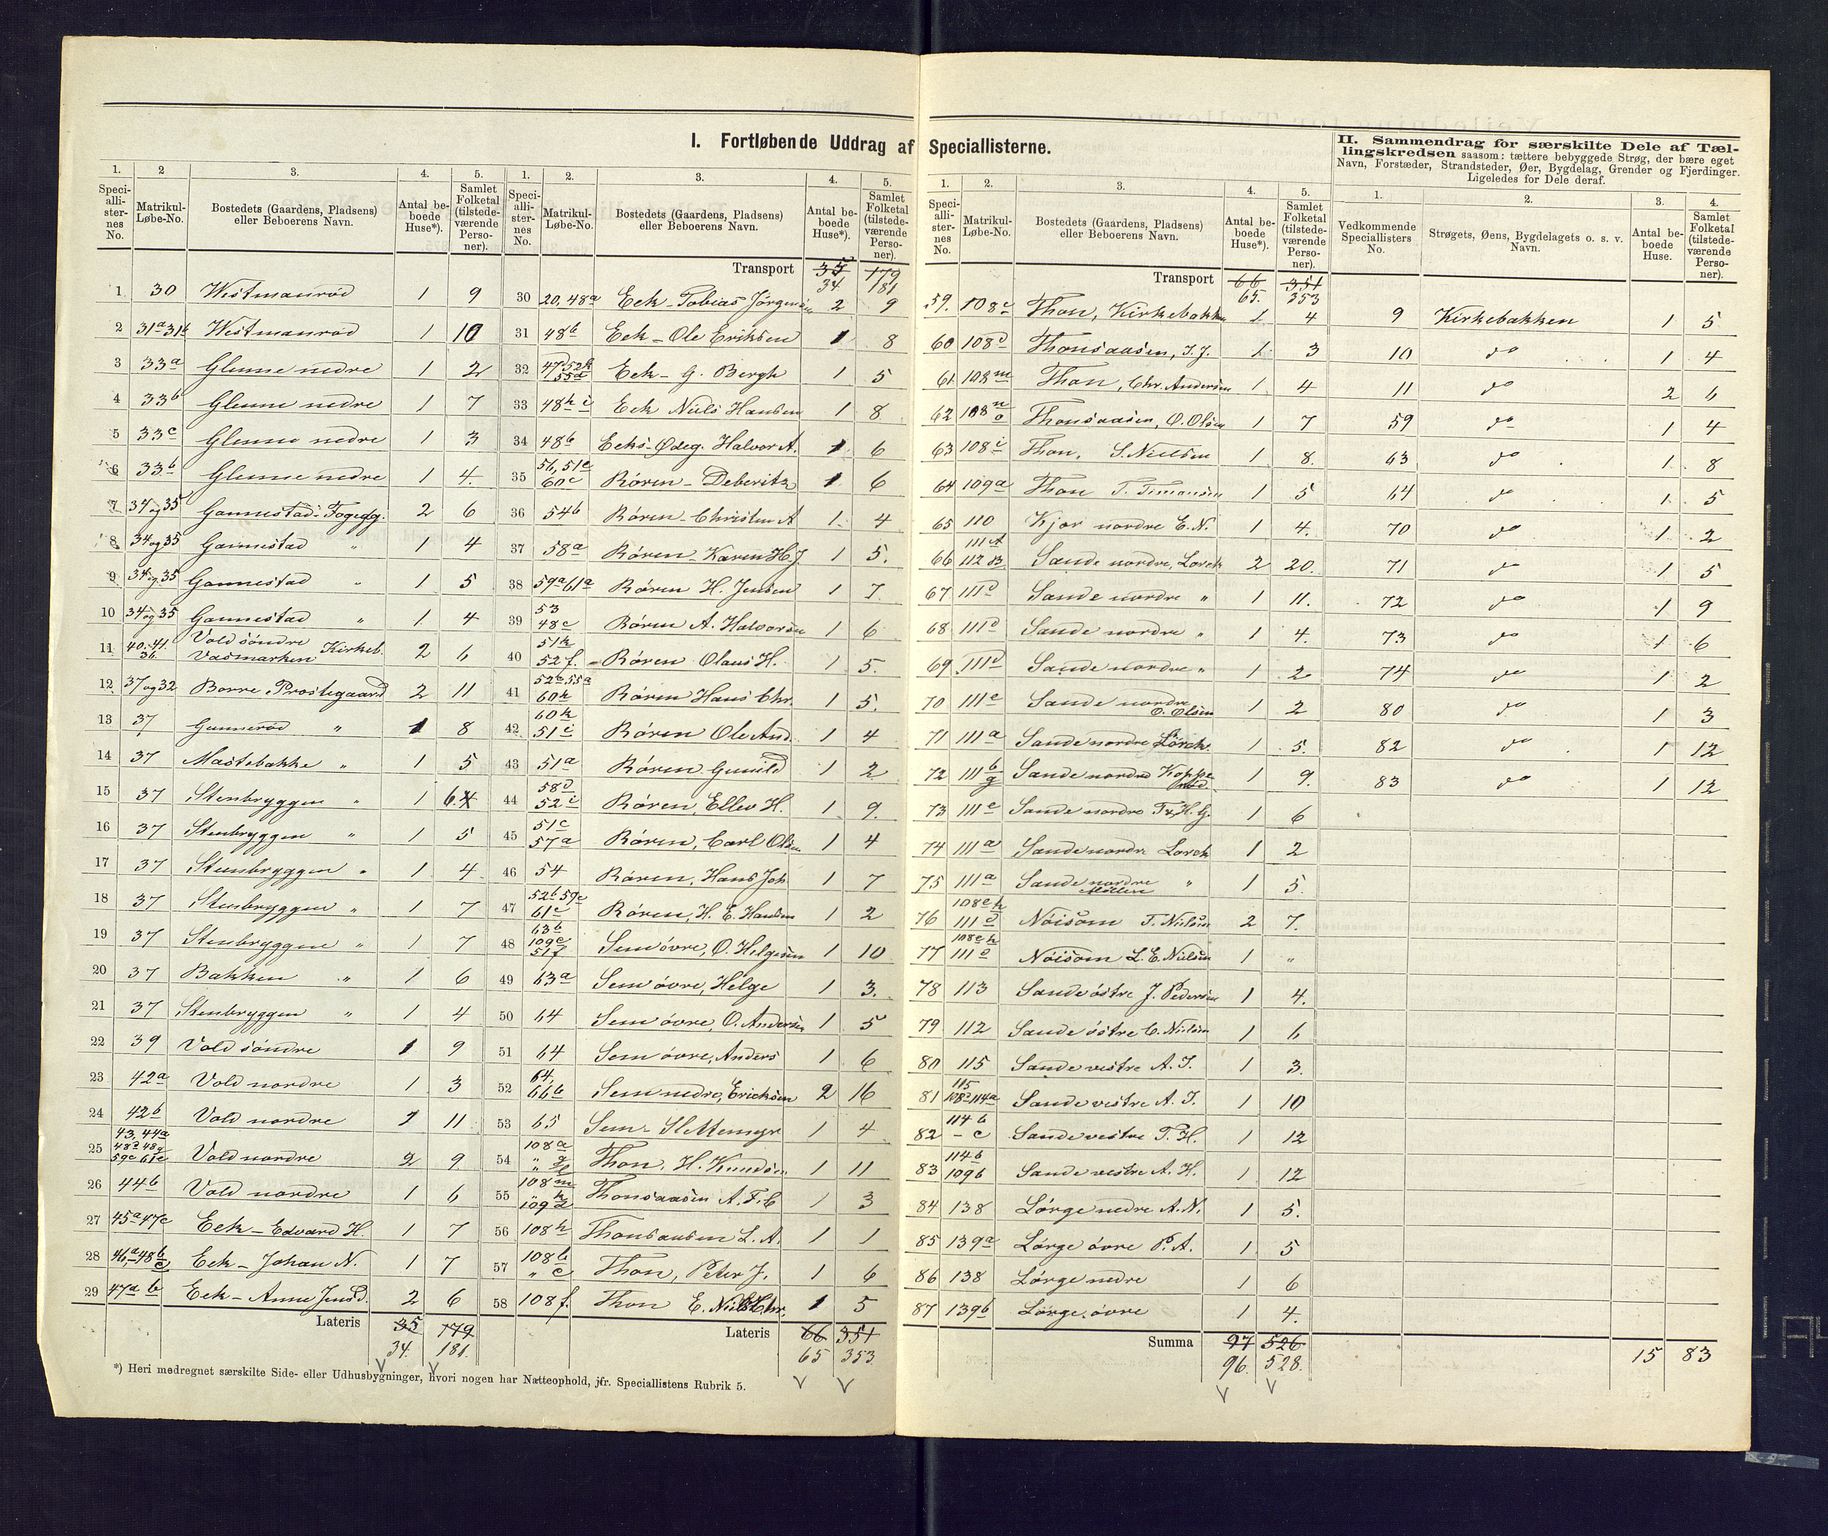 I. Fortløbende Uddrag af Speciallisterne.
II. Sammendrag for særskilte Dele af Tæl-
lingskredsen saasom: tættere bebyggede Strøg, der bære eget
Navn, Forstæder, Strandsteder, Øer, Bygdelag, Grender og Fjerdinger.
Ligeledes for Dele deraf.
1. 2 3. 4. 5.
Speciallisternes No. Matrikul-Løbe-No. Bostedets (Gaardens, Pladsens) eller Beboerens Navn. Antal beboede Huse*). Samlet Folketal (tilstedeværende Personer).
1 30 Westmanrød 1 9
2 31a 31b Westmanrød 1 10
3 33a Glenne nedre 1 2
4 33b Glenne nedre 1 7
5 33c Glenne nedre 1 3
6 33b Glenne nedre 1 4.
7 34 og 35 Gannestad Fogedg. 2 6
8 34 og 35 Gannestad " 1 4
9 34 og 35 Gannestad " 1 5
10 34 og 35 Gannestad " 1 4
11 40. 41. 36. Vold søndre Vasmarken Kirkeb. 2 6
12 37 og 32 Borre Prostegaard 2 11
13 37 Gannerød " 1 8
14 37 Mastebakke " 1 5
15 37 Stenbryggen " 1 6
16 37 Stenbryggen " 1 5
17 37 Stenbryggen " 1 4
18 37 Stenbryggen " 1 7
19 37 Stenbryggen " 1 7
20 37 Bakken " 1 6
21 37 Stenbryggen " 1 4
22 39 Vold søndre 1 9
23 42a Vold nordre 1 3
24 42b Vold nordre 1 11
25 43, 44a 48d 48g 59c 61c Vold nordre 2 9
26 44b Vold nordre 1 6
27 45a 47c Eek - Edvard H. 1 7
28 46a - 48b c Eek - Johan N. 1 7
29 47a b Eek - Anne Jensd. 2 6
Lateris 35 179
34. 181.
*) Heri medregnet særskilte Side- eller Udhusbygninger, hvori nogen har Natteophold, jfr. Speciallistens Rubrik 5.
1. 2. 3. 4. 5.
Speciallisternes No. Matrikul-Løbe-No. Bostedets (Gaardens, Pladsens) eller Beboerens Navn. Antal beboede Huse*). Samlet Folketal (tilstedeværende Personer).
Transport 35 179
34 181
30 20, 48a Eek - Tobias Jörgensen 2 9
31 48b Eek - Ole Eriksen 1 8
32 47d 52k 55c Eek - G. Bergh 1 5
33 48h i Eek Niels Hansen 1 8
34 48b Eeks-Ødeg. Halvor A. 1 6
35 56, 51e 60c Røren - Deberitz 1 6
36 54b Røren - Christen A 1 4
37 58a Røren - Karen H. J. 1 5.
38 59a 61a Røren H. Jensen 1 7
39 53 48c Røren A. Halvorsen 1 6
40 51k 52f. Røren Olaus H. 1 5.
41 52b 55a 60k Røren Hans Chr. 1 5.
42 60k 51i Røren Ole And. 1 4
43 51a Røren Gunild 1 2
44 58d 52i Røren, Ellev H. 1 9.
45 51c 57a Røren, Carl Olsen 1 4
46 54 Røren, Hans Joh. 1 7
47 52b 59c 61c Røren, H. E. Hansen 1 2
48 63b 109c 51f Sem øvre, O. Helgesen 1 10
49 63a Sem øvre, Helge 1 3.
50 64 Sem øvre, O. Andersen 1 5
51 64 Sem øvre, Anders 1 6
52 64, 66b Sem nedre, Ericksen 2 16
53 65 Sem - Slettemyr 1 4
54 108a " g Thon, H. Knudsen 1 11
55 108m " k 109d Thonsaasen A. F. C 1 3
56 108h Thonsaasen L. A. 1 1
57 108b " c Thon, Peter J. 1 6
58 108f. Thon E. Niels Chr. 1 5
Lateris 66 351
65 353
1. 2. 3. 4. 5.
Speciallisternes No. Matrikul-Løbe-No. Bostedets (Gaardens, Pladsens) eller Beboerens Navn. Antal beboede Huse*). Samlet Folketal (tilstedeværende Personer).
Transport 66 351
65. 353
59. 108c Thon, Kirkebakken 1 4
60 108d Thonsaasen, J. J. 1 3
61 108m Thon, Chr. Andersen 1 4
62 108n o Thonsaasen, O. Olsen 1 7
63 108i Thon, S. Nielsen 1 8.
64 109a Thon T. Timansen 1 5
65 110 Kjær nordre E. N. 1 4.
66 111A 112B Sande nordre, Lorck 2 20.
67 111d Sande nordre " 1 11.
68 111d Sande nordre " 1 4.
69 111d Sande nordre " 1 2
70 111e Sande nordre O. Olsen 1 2
71 111a Sande nordre Lorck. 1 5.
72 111b g Sande nordre 1 9.
73 111e Sande nordre T. H. G. 1 6
74 111a Sande nordre Lorck 1 2
75 111a Sande nordre Møllen " 1 5.
76 108ek 111d Nøisom T. Nielsen 2 7.
77 108ek 111d Nøisom L. E. Nielsen 1 "
78 113 Sande østre J. Pedersen 1 4.
79 112 Sande østre C. Nielsen 1 6
80 115 Sande vestre A. T. 1 3.
81 115 108d 114a Sande vestre A. T. 1 10
82 114b - c Sande vestre T. H. 1 12
83 114b 109b Sande vestre A. H. 1 12
84 138 Lørge nedre A. N. 1 5.
85 139a Lørge øvre P. A. 1 5
86 138 Lørge nedre 1 6
87 139b Lørge øvre 1 4.
Summa 97 526
96. 528.
1. 2. 3. 4.
Vedkommende Speciallisters No. Strøgets, Øens, Bygdelagets o. s. v. Navn. Antal beboede Huse. Samlet Folketal (tilstedeværende Personer).
9 Kirkebakken 1 5
10 do 1 4
11 do 2 6
59 do 1 4
63 do 1 8
64 do 1 5
70 do 1 2
71 do 1 5
72 do 1 9
73 do 1 6
74 do 1 2
80 do 1 3
82 do 1 12
83 do 1 12
15 83